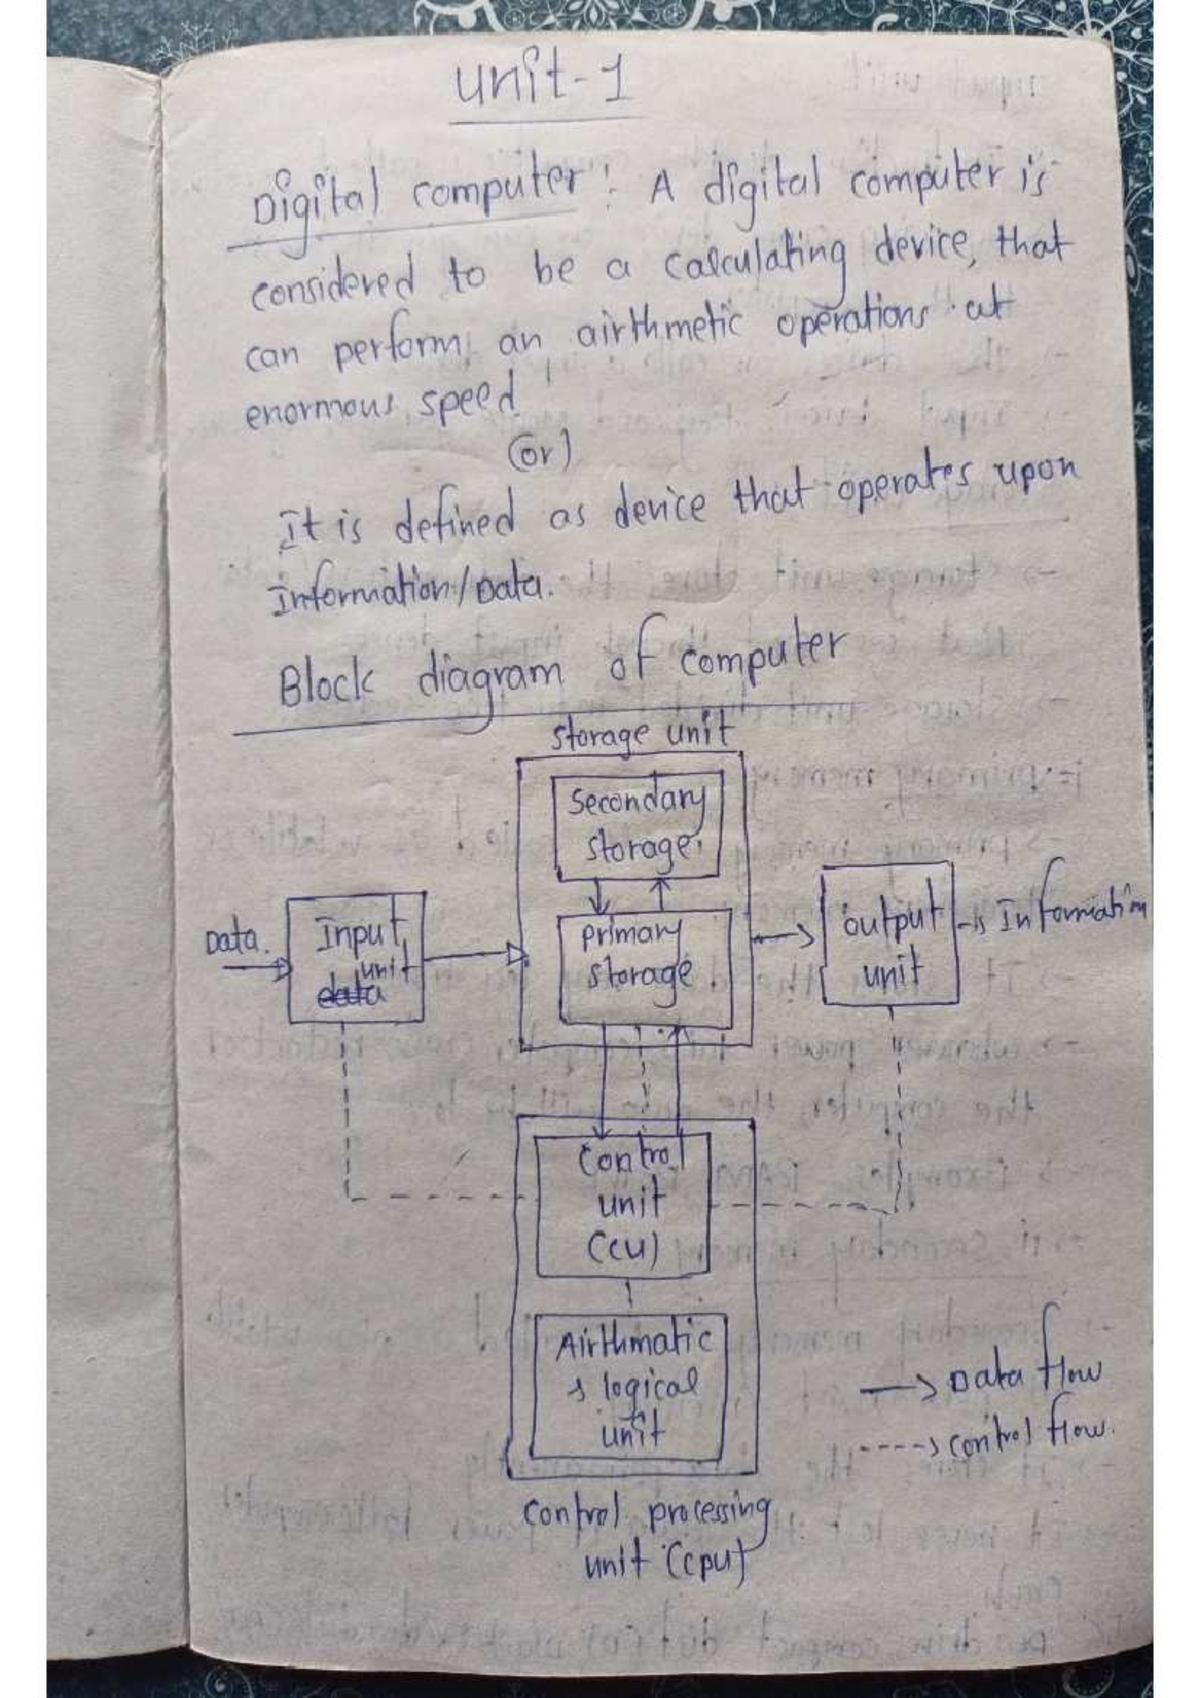 Unit-1
Digital computer: A digital computer is
considered to be a calculating device, that
can perform an airthmetic operations at
enormous speed
(or)
It is defined as device that operates upon
Information/Data.
Block diagram of computer
Storage unit
Secondary
storage.
Data.
Input
unit
data
primary
storage
output
unit
Information
Control
unit
(CU)
Airthmatic
& logical
unit
Data flow
control flow.
Control processing
unit (cpu)